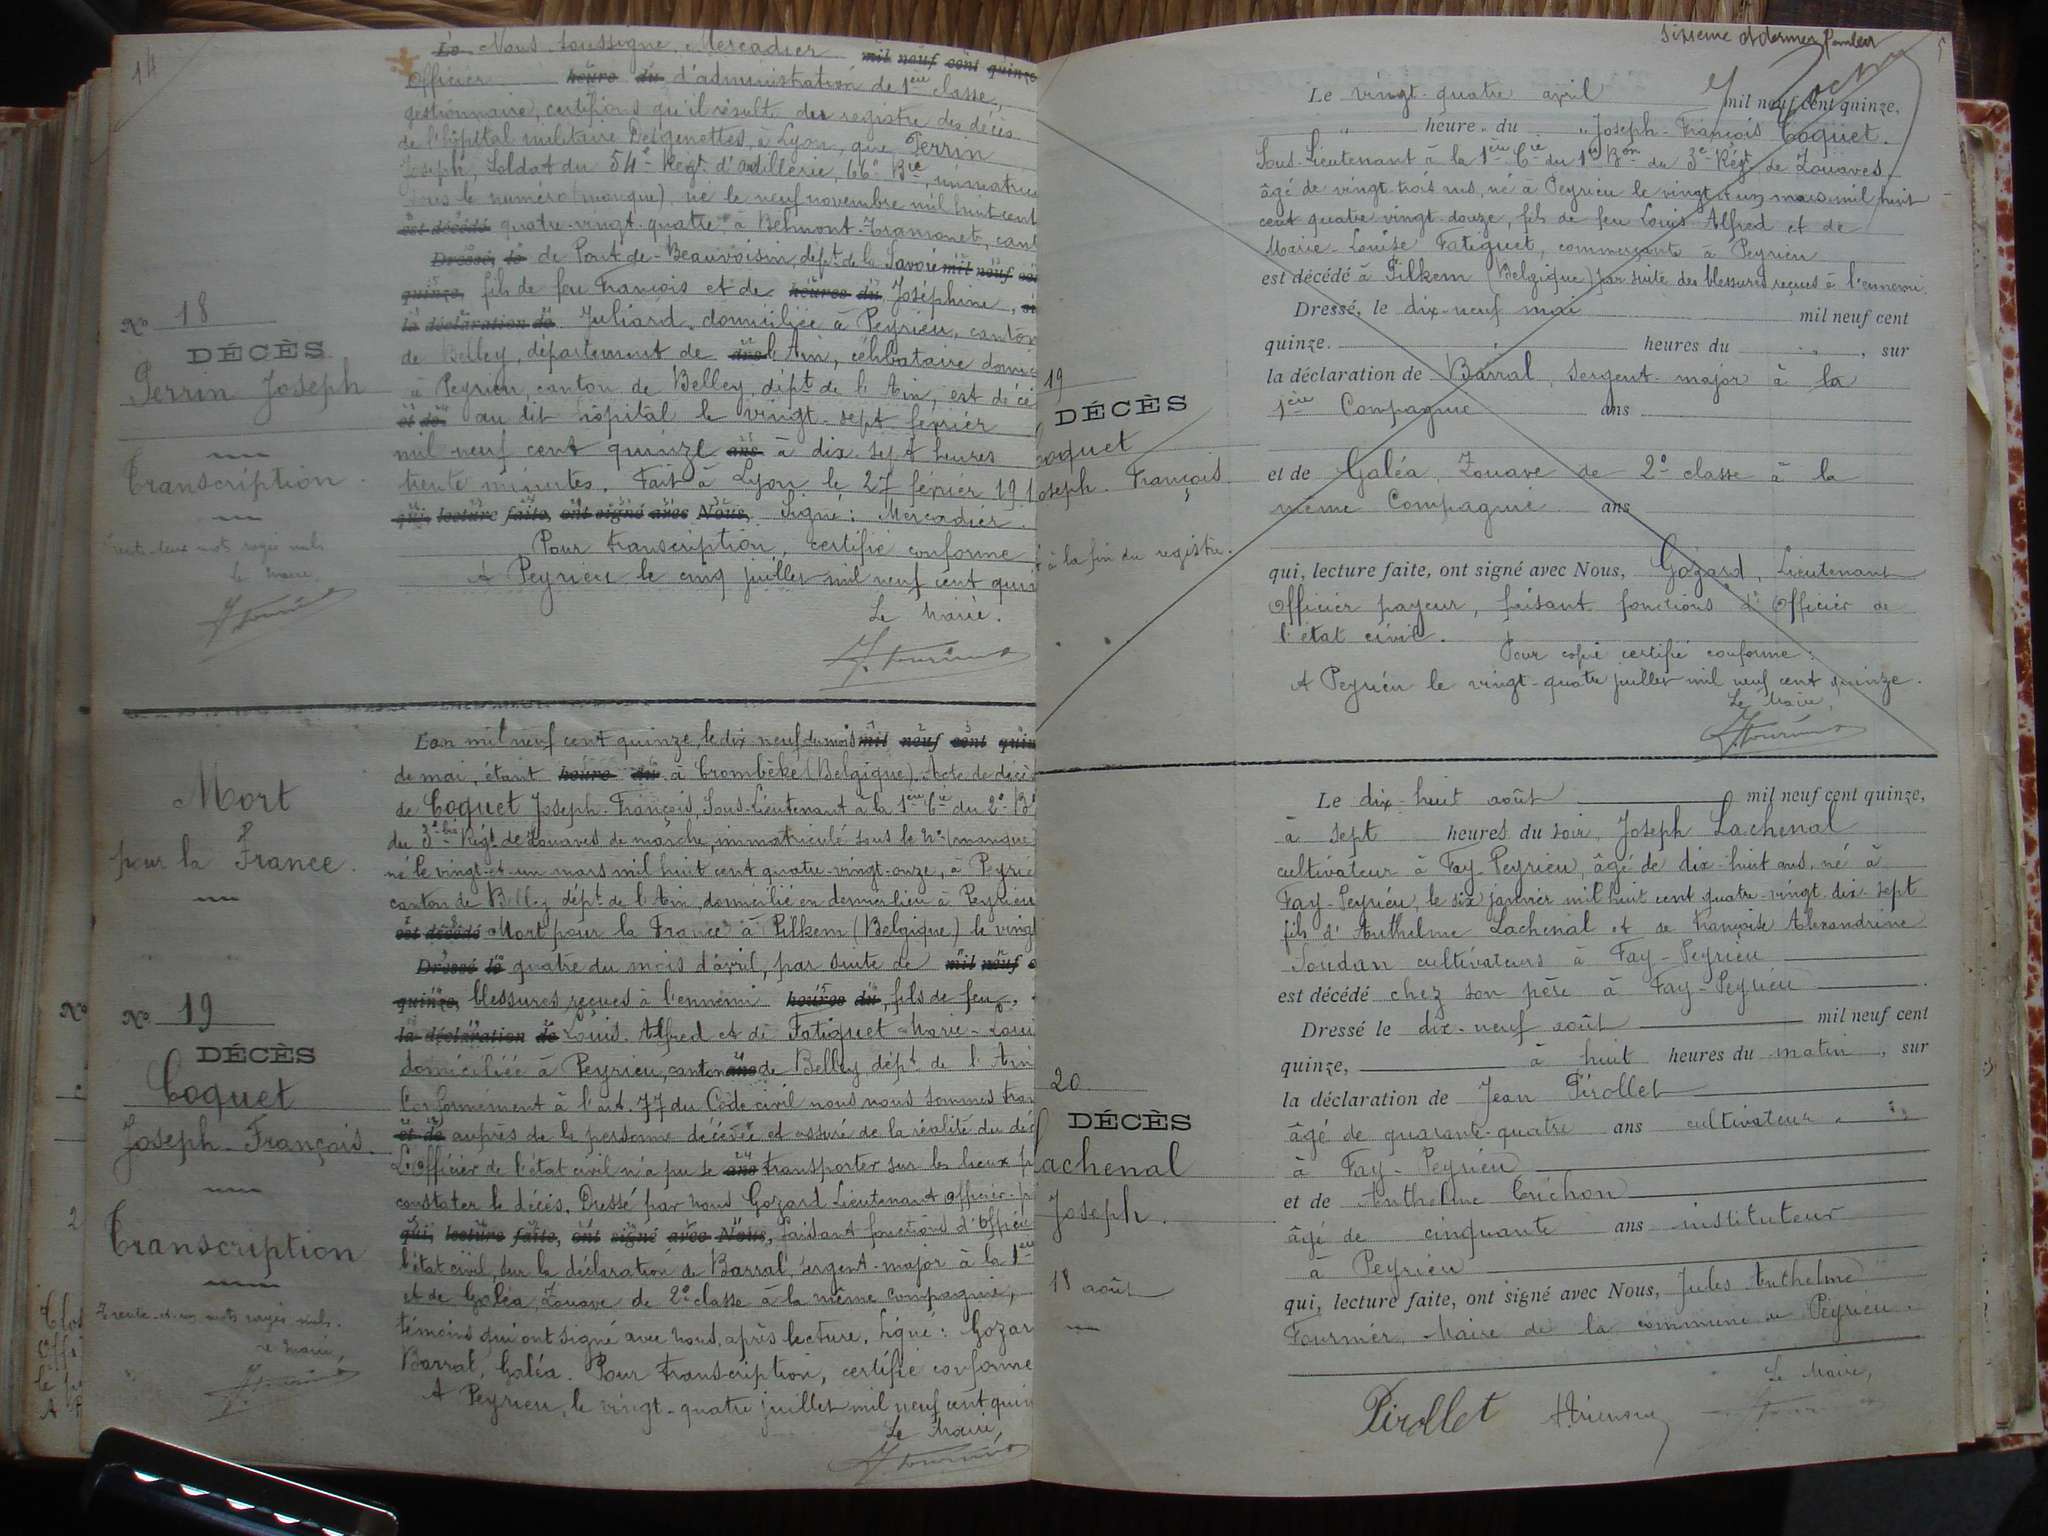 14
Le Nous soussigné, Mercadier mil neuf cent quinze
Officier heure du d'administration de 1ère classe,
gestionnaire, certifions qu'il résulte des registre des décès
de l'hôpital militaire Desgenettes, à Lyon, que Perrin
Joseph, Soldat du 54e Régt. d'artillerie, 66e Bie, immatricu
sous le numéro (manque), né le neuf novembre mil huit cent
est décédé quatre-vingt-quatre, à Belmont-Tramonet, cant
Dressé, le de Pont-de-Beauvoisin, dépt. de la Savoie mil neuf cen
quinze, fils de feu François et de heures du Joséphine,
la déclaration de Juliard, domiciliée à Peyrieu, canton
de Belley, département de ans l'Ain, célibataire domic
à Peyrieu, canton de Belley, dépt. de l'Ain, est décé
et de au dit hôpital le vingt-sept février
mil neuf cent quinze ans à dix-sept heures
trente minutes. Fait à Lyon le 27 février 191
qui, lecture faite, ont signé avec Nous, Signé: Mercadier.
Pour transcription, certifié conforme
A Peyrieu le cinq juillet mil neuf cent quin
Le Maire.
No 18
DÉCÈS
Perrin Joseph
Transcription.
trente-deux mots rayés nuls
Le Maire,
L'an mil neuf cent quinze, le dix-neuf du mois mil neuf cent quin
de mai, étant heure du à Crombeke (Belgique). Acte de décè
de Coquet Joseph-François, Sous-Lieutenant à la 1ère Cie du 2e Bon
du 3e bis Régt. de Zouaves de marche, immatriculé sous le No (manque)
né le vingt-et-un mars mil huit cent quatre-vingt-onze, à Peyrie
canton de Belley dépt. de l'Ain, domicilié en dernier lieu à Peyrieu
est décédé Mort pour la France à Pilkem (Belgique) le vingt
Dressé le quatre du mois d'avril, par suite de mil neuf c
quinze, blessures reçues à l'ennemi heures du, fils de feu
la déclaration de Louis Alfred et de Fatiguet Marie-Loui
domiciliée à Peyrieu, canton ans de Belley, dépt. de l'Ain
Conformément à l'art. 77 du Code civil nous nous sommes tran
et de auprès de la personne décédée et assuré de la réalité du déc
L'officier de l'état civil n'a pu se ans transporter sur les lieux p
constater le décès. Dressé par nous Gozard Lieutenant officier-p
qui, lecture faite, ont signé avec Nous, faisant fonctions d'Officie
l'état civil, sur la déclaration de Barral, sergent-major à la 1ère
et de Galéa, Zouave de 2e classe à la même compagnie,
témoins qui ont signé avec nous, après lecture. Signé: Gozar
Barral, Galéa. Pour transcription, certifié conforme
A Peyrieu, le vingt-quatre juillet mil neuf cent quin
Le Maire,
Mort
pour la France.
No 19
DÉCÈS
Coquet
Joseph-François.
Transcription
Trente-et-un mots rayés nuls.
Le Maire,
Sixième et dernier feuillet
Le vingt-quatre avril mil neuf cent quinze,
heure du Joseph-François Coquet.
Sous-Lieutenant à la 1ère Cie du 1er Bon du 3e Régt. de Zouaves,
âgé de vingt-trois ans, né à Peyrieu le vingt et un mars mil huit
cent quatre-vingt-douze, fils de feu Louis Alfred et de
Marie-Louise Fatiguet, commerçante à Peyrieu
est décédé à Pilkem (Belgique) par suite des blessures reçues à l'ennemi.
Dressé, le dix-neuf mai mil neuf cent
quinze. heures du , sur
la déclaration de Barral, sergent-major à la
1ère Compagnie ans
et de Galéa, Zouave de 2e classe à la
même Compagnie ans
qui, lecture faite, ont signé avec Nous, Gozard, Lieutenant
Officier payeur, faisant fonctions d'Officier de
l'état civil.
Pour copie certifié conforme:
A Peyrieu le vingt-quatre juillet mil neuf cent quinze.
Le Maire,
19
DÉCÈS
Coquet
Joseph-François.
à la fin du registre.
Le dix-huit août mil neuf cent quinze,
à sept heures du soir, Joseph Lachenal
cultivateur à Fay-Peyrieu, âgé de dix-huit ans, né à
Fay-Peyrieu, le six janvier mil huit cent quatre-vingt-dix-sept
fils d'Anthelme Lachenal et de Françoise Alexandrine
Soudan cultivateurs à Fay-Peyrieu
est décédé chez son père à Fay-Peyrieu
Dressé le dix-neuf août mil neuf cent
quinze, à huit heures du matin, sur
la déclaration de Jean Pirollet
âgé de quarante-quatre ans cultivateur
à Fay-Peyrieu
et de Anthelme Crichon
âgé de cinquante ans instituteur
à Peyrieu
qui, lecture faite, ont signé avec Nous, Jules Anthelme
Fournier, Maire de la commune de Peyrieu.
Le Maire,
Pirollet
20
DÉCÈS
Lachenal
Joseph.
18 août